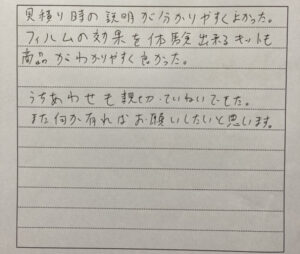 見積り時の説明が分かりやすくよかった。
フィルムの効果を体験出来るキットも
商品がわかりやすく良かった。
うちあわせも親切、ていねいでした。
また何か有ればお願いしたいと思います。